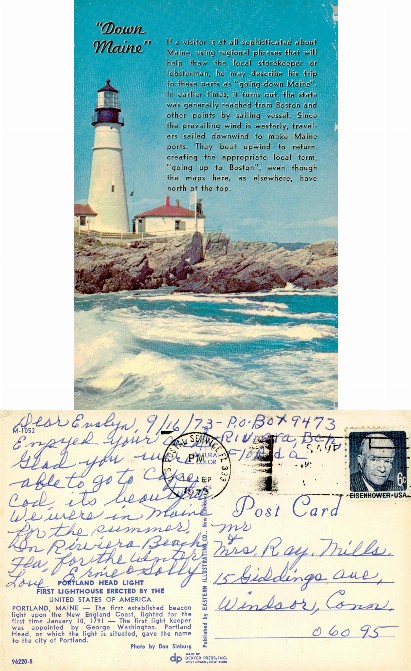 "Down
Maine"
If a visitor is at all sophisticated about
Maine, using regional phrases that will
help thaw the local storekeeper or
lobsterman, he may describe his trip
to these parts as "going down Maine".
In earlier times, it turns out, the state
was generally reached from Boston and
other points by sailing vessel. Since
the prevailing wind is westerly, travel-
ers sailed downwind to make Maine
ports. They beat upwind to return,
creating the appropriate local term,
"going up to Boston", even though
the maps here, as elsewhere, have
north at the top.
M-1052
Dear Evelyn, 9/16/73 - P.O. Box 9473
Enjoyed your Riviera, Bch
Glad you were Florida
able to go to Cape
Cod, its beautiful
We were in Maine
for the summer,
In Riviera Beach
Fla, for the winter
Love, Ernie & Sally
U.S. POSTAL SERVICE, FL 333
PM
SEP
1973
COLOR
EISENHOWER · USA
6c
Post Card
Mr &
Mrs. Ray. Mills.
15 Giddings ave,
Windsor, Conn.
06095
PORTLAND HEAD LIGHT
FIRST LIGHTHOUSE ERECTED BY THE
UNITED STATES OF AMERICA
PORTLAND, MAINE — The first established beacon
light upon the New England Coast, lighted for the
first time January 10, 1791 — The first light keeper
was appointed by George Washington. Portland
Head, on which the light is situated, gave the name
to the city of Portland.
Photo by Don Sieburg
96220-B
Published by EASTERN ILLUSTRATING CO.
MADE BY
dp DEXTER PRESS, INC.
WEST NYACK, NEW YORK